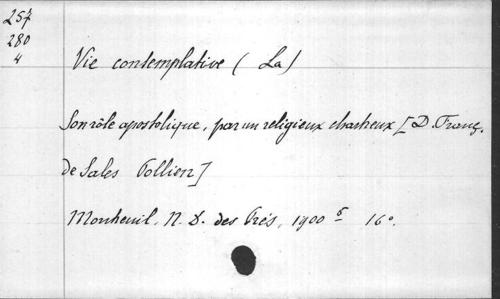 257
280
4
Vie contemplative (La)
Son rôle apostolique, par un religieux chartreux [D. Franç.
de Sales Pollien]
Montreuil. N. D. des Prés, 1900 16°.